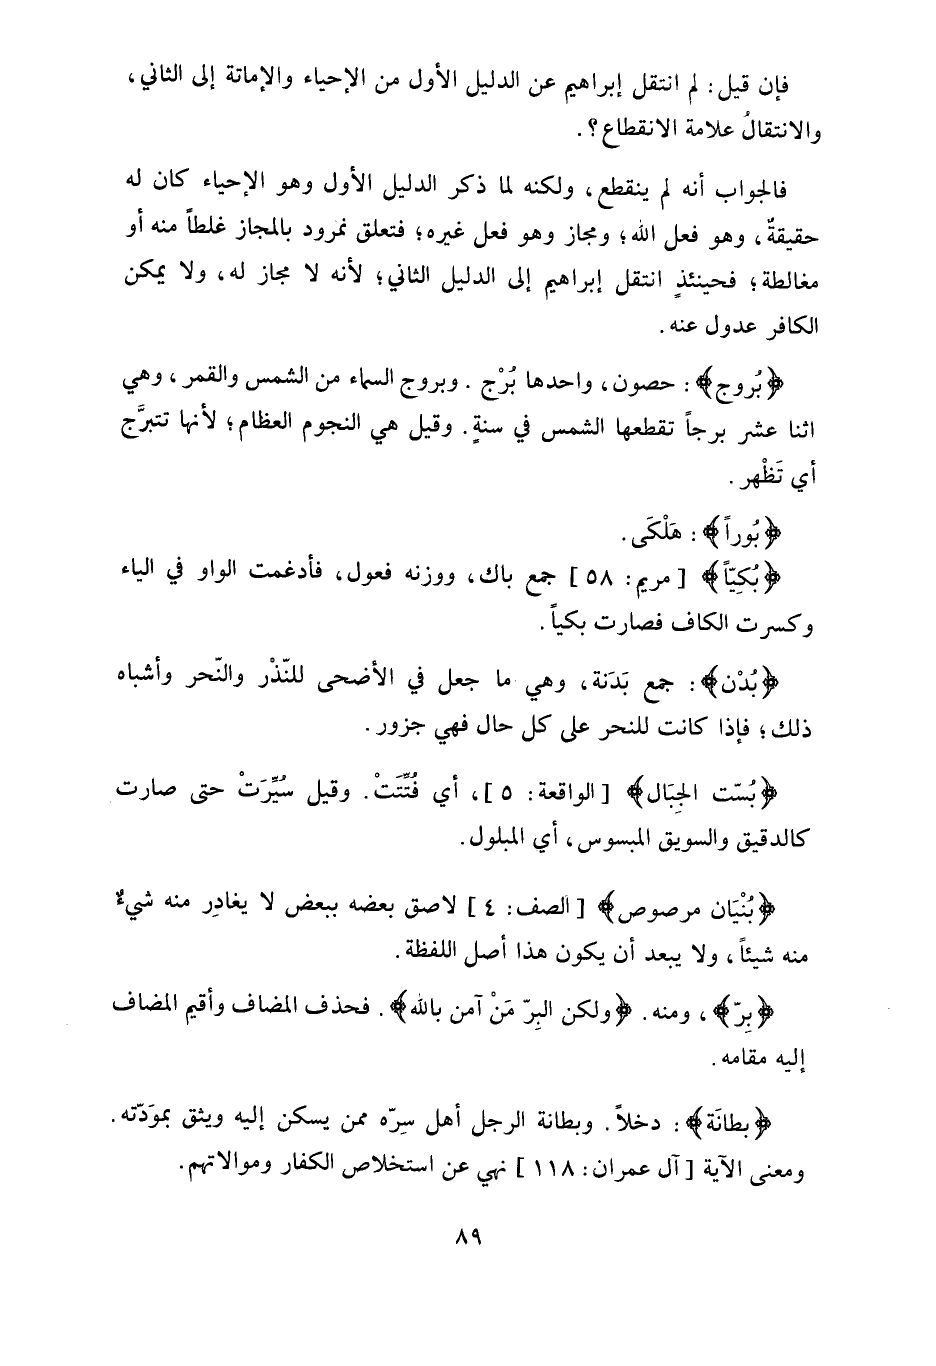 فإن قيل: لم انتقل إبراهيم عن الدليل الأول من الإحياء والإماتة إلى الثاني،
والانتقالُ علامة الانقطاع؟.
فالجواب أنه لم ينقطع، ولكنه لما ذكر الدليل الأول وهو الإحياء كان له
حقيقةٌ، وهو فعل الله؛ ومجاز وهو فعل غيره؛ فتعلق نمرود بالمجاز غلطاً منه أو
مغالطة؛ فحينئذٍ انتقل إبراهيم إلى الدليل الثاني؛ لأنه لا مجاز له، ولا يمكن
الكافر عدول عنه.
﴿بُروج﴾: حصون، واحدها بُرْج. وبروج السماء من الشمس والقمر، وهي
اثنا عشر برجاً تقطعها الشمس في سنةٍ. وقيل هي النجوم العظام؛ لأنها تتبرَّج
أي تَظْهر.
﴿بُوراً﴾: هَلْكَى.
﴿بُكِيّاً﴾ [مريم: ٥٨] جمع باك، ووزنه فعول، فأدغمت الواو في الياء
وكسرت الكاف فصارت بكياً.
﴿بُدْن﴾: جمع بَدَنة، وهي ما جعل في الأضحى للنّذْر والنّحر وأشباه
ذلك؛ فإذا كانت للنحر على كل حال فهي جزور.
﴿بُسّت الجِبَال﴾ [الواقعة: ٥]، أي فُتِّتَتْ. وقيل سُيِّرَتْ حتى صارت
كالدقيق والسويق المبسوس، أي المبلول.
﴿بُنْيَان مرصوص﴾ [الصف: ٤] لاصق بعضه ببعض لا يغادِر منه شيءٌ
منه شيئاً، ولا يبعد أن يكون هذا أصل اللفظة.
﴿بِرّ﴾، ومنه. ﴿ولكن البِرّ مَنْ آمن بالله﴾. فحذف المضاف وأقيم المضاف
إليه مقامه.
﴿بطانَة﴾: دخلاً. وبطانة الرجل أهل سِرّه ممن يسكن إليه ويثق بموَدّته.
ومعنى الآية [آل عمران: ١١٨] نهي عن استخلاص الكفار وموالاتهم.
٨٩